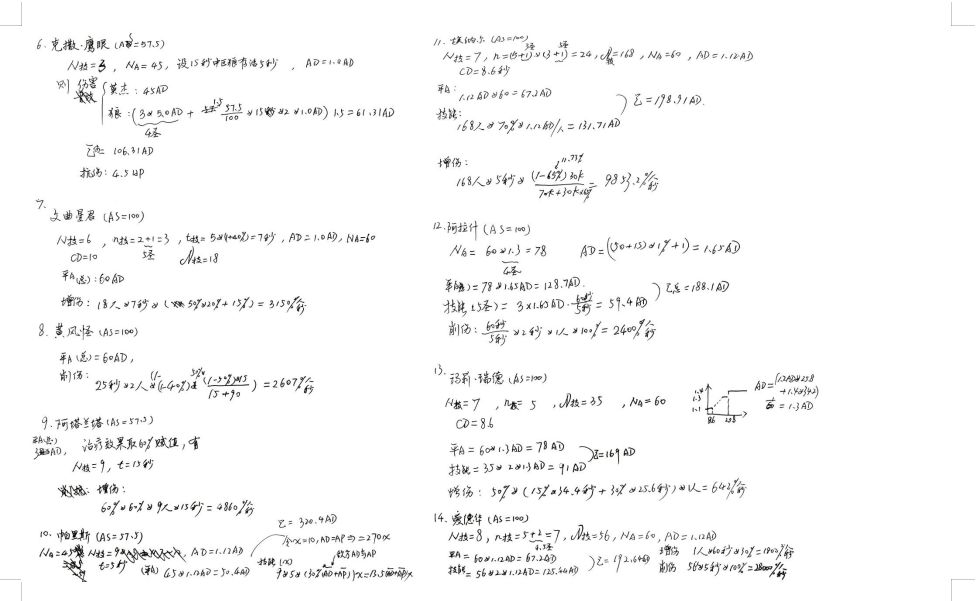 6. 克撒·鹰眼 (AS=57.5)
N技=3, NA=45, 设15秒中巨狼存活5秒, AD=1.0AD
则 伤害
莫杰: 45AD
狼: (3×5.0AD + 57.5/100 ×15 ×2×1.0AD) 1.5=61.31AD
4圣
106.31AD
抗伤: 4.5HP
7.
文曲星君 (AS=100)
N技=6, n技=2+1=3, t技=5×(1+40%)=7秒, AD=1.0AD, NA=60
5圣
CD=10 N技=18
平A(总): 60AD
增伤: 18人×7秒×(50%×20%+15%)=3150%人/秒
8. 黄风怪 (AS=100)
平A(总)=60AD,
削伤:
25秒×2人× =2607%人/秒
9. 阿塔兰塔 (AS=57.5)
治疗效果取60%赋值, 有
N技=9, t=15秒
增伤:
60%×60%×9人×15秒=4860%人/秒
10. 帕里斯 (AS=57.5)
AD=1.12AD
t=5秒
(平A) 45×1.12AD=50.4AD
Σ=320.4AD
令x=10, AD=AP 即=270x
敌方AD与AP
技能(x)
9×5×(30%(AD+AP))×x=13.5(AD+AP)x
11. (AS=100)
N技=7, n=(5+1)×(3+1)=24, N技=168, NA=60, AD=1.12AD
5圣 5圣
CD=8.6秒
平A:
1.12AD×60=67.2AD
技能:
168人×70%×1.12AD/人=131.71AD
Σ=198.91AD.
增伤:
11.73%
168人×5秒× =9853.2%人/秒
12. 阿拉什 (AS=100)
NA=60×1.3=78 AD=((50+15)×1%+1)=1.65AD
4圣
=78×1.65AD=128.7AD.
技能(5圣)=3×1.65AD·60秒/5秒=59.4AD
Σ总=188.1AD
削伤: 60秒/5秒×2秒×1人×100%=2400%人/秒
13.
玛莉·瑞德 (AS=100)
N技=7, n技=5, N技=35, NA=60
CD=8.6
1.4
1.3
1.1
8.6 25.8
AD=(1.2AD×25.8
+1.4×34.2)
÷60=1.3AD
平A=60×1.3AD=78AD
技能=35×2×1.3AD=91AD
Σ=169AD
增伤: 50%×(15%×34.4秒+30%×25.6秒)×1人=642%人/秒
14. 爱德华 (AS=100)
N技=8, n技=5+2=7, N技=56, NA=60, AD=1.12AD
4.5圣
平A=60×1.12AD=67.2AD
技能=56×2×1.12AD=125.44AD
Σ=192.64AD
增伤 1人×60秒×30%=1800%人/秒
削伤 56×5秒×100%=28000%人/秒